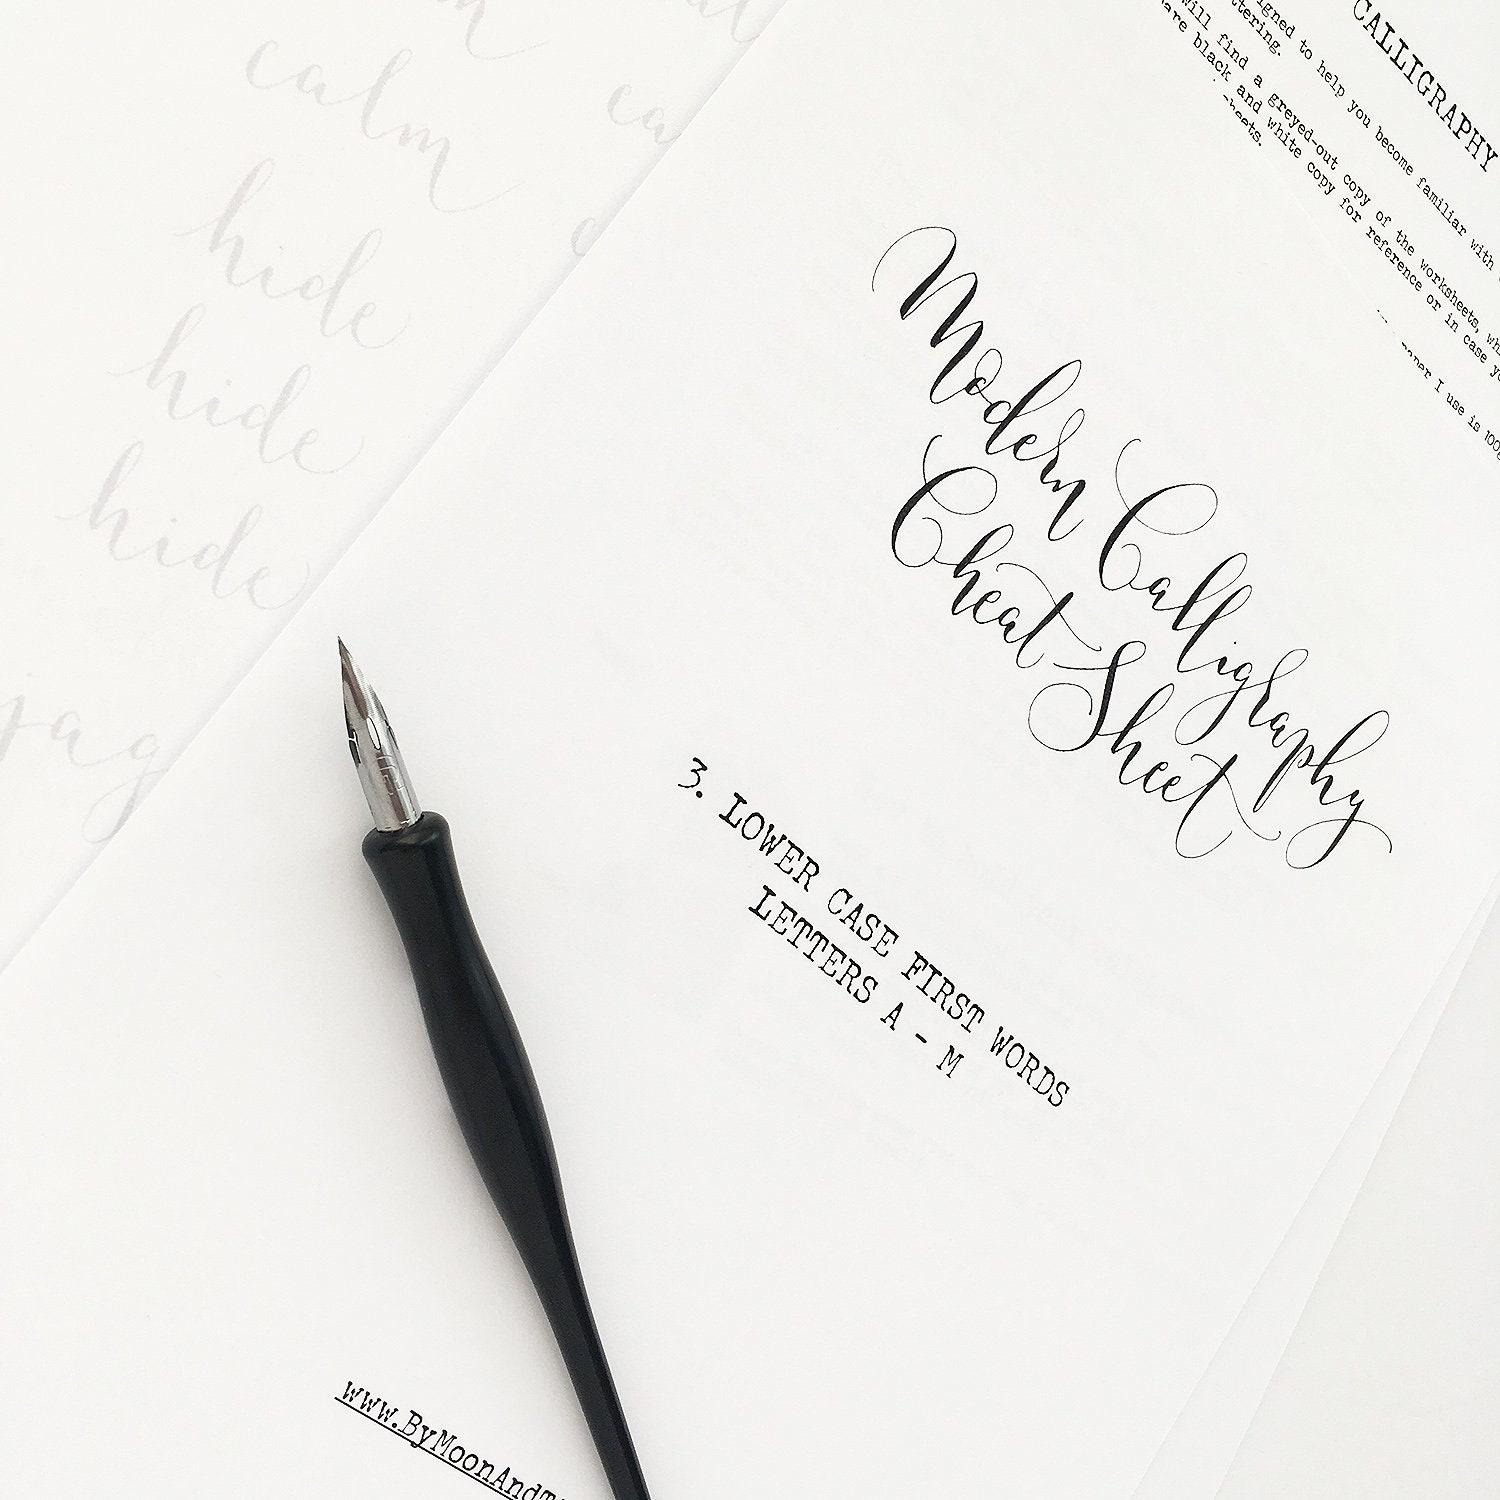 calm
ca
hide
hide
hide
jag
CALLIGRAPHY
to help you become familiar with
will find a greyed-out copy of the worksheets,
are black and white copy for reference or in case
I use is
Modern Calligraphy
Cheat Sheet
3. LOWER CASE FIRST WORDS
LETTERS A - M
www.ByMoonAndT